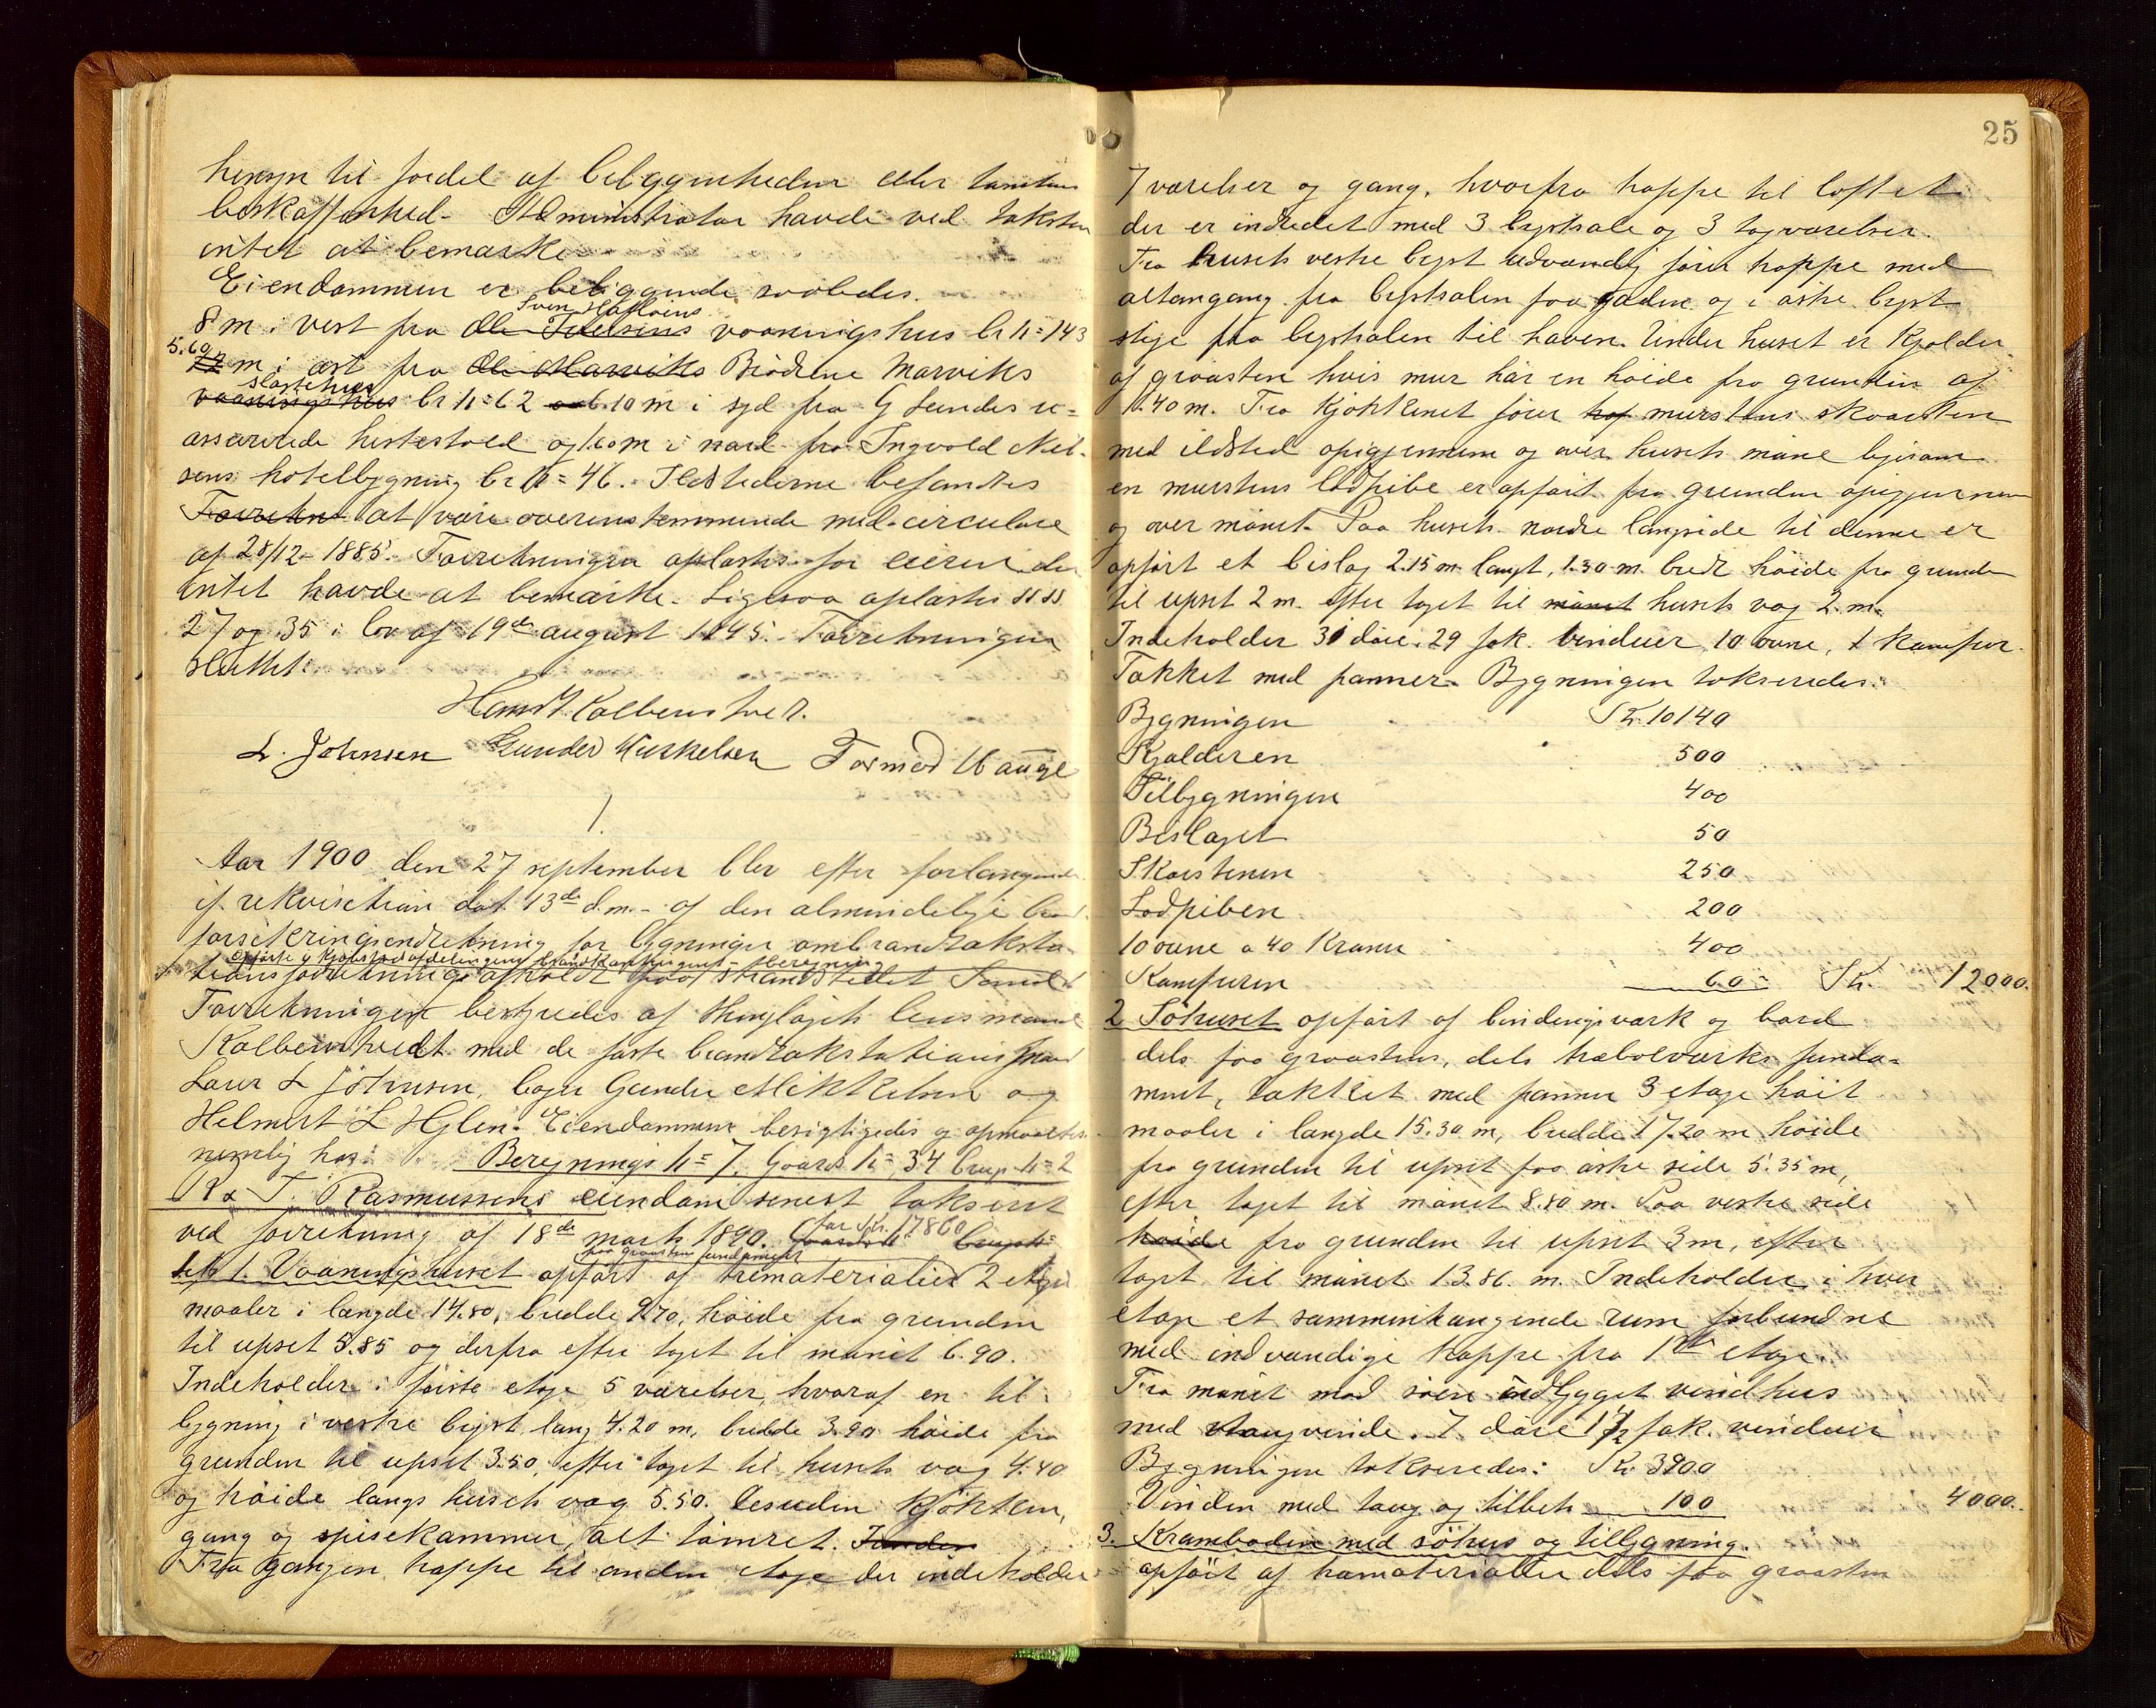 hensyn til fordel af bebyggenheden eller tomtens
beskaffenhed. Administrator havde ved taksten
intet at bemærke
Eiendommen er beliggende saaledes.
Sven Hafsøens
8 m i vest fra Ole Idelsens vaaningshus br N= 143
5.60 m i øst fra Ole Marviks Brødrene Marviks
slagtehus
vaaningshus br N= 62 6.10 m i syd fra G Lundes u-
assurerede hestestald og 1.60 m i nord fra Ingvald Niel-
sens hotelbygning br N= 46. Ildstederne befandtes
Forretn at være overensstemmende med circulære
af 28/12 - 1885. Forretningen oplæstes for eieren der
intet havde at bemærke. Ligesaa oplæstes §§
27 og 35 i lov af 19de august 1845. Forretningen
sluttet.
Hans Kolbenstvedt.
L. Johnsen Gunder Mikkelsen Tormod Hauge
1.
Aar 1900 den 27 september blev efter forlangende
if. rekvisition dat. 13de d.m. af den almindelige brand
forsikringsindretning for bygninger ombrandtaksta-
tionsforretning afholdt paa strandstedet
Forretningen bestyredes af thinglagets lensmand
Kolbenstvedt med de faste brandtakstationsmænd
Laur L Johnsen, bager Gunder Mikkelsen og
Helmert L Hylen. Eiendommene besigtigedes og opmaaltes
nemlig hos: Beregnings N= 7. Gaards N= 34 brugs N= 2
P & T. Rasmussens eiendom senest takseret
for Kr. 17860
ved forretning af 18de marts 1890. Gaards N brugs N=
paa graastens fundament
1. Vaaningshuset opført af træmaterialier 2 etager
maaler i længde 14.80, bredde 9.70, høide fra grunden
til upset 5.85 og derfra efter taget til mønet 6.90.
Indeholder i første etage 5 værelser, hvoraf en til-
bygning i vestre bygst lang 4.20 m, bredde 3.90 høide fra
grunden til upset 3.50, efter taget til husets væg 4.40
og høide langs husets væg 5.50. Desuden kjøkken,
gang og spisekammer, alt tømret.
Fra gangen trappe til anden etage der indeholder
25
7 værelser og gang, hvorfra trappe til loftet
der er indredet med 3 bystsale og 3 tagværelser.
Fra husets vestre byst udvendig fører trappe med
altangang fra bystsalen paa gaden og i østre byst
stige fra bystsalen til haven. Under huset er Kjælder
af graasten hvis mur har en høide fra grunden af
1.40 m. Fra Kjøkkenet fører murstens skorsten
med ildsted opigjennem og over husets møne ligesom
en murstens lodpibe er opført fra grunden opigjennem
og over mønet. Paa husets nordre langside til denne er
opført et bislag 2.15 m. langt, 1.30 m. bredt høide fra grunden
til upset 2 m. efter taget til mønet husets væg 2 m.
Indeholder 31 døre, 29 fak. vinduer, 10 ovne, 1 kamfur.
Tækket med panner. Bygningen takseredes:
Bygningen Kr. 10140
Kjælderen 500
Tilbygningen 400
Bislaget 50
Skorstenen 250
Lodpiben 200
10 ovne a 40 Kroner 400
Kamfuren 60 Kr. 12000.
2 Søhuset opført af bindingsværk og bord
dels paa graastens, dels træbolværks funda-
ment, tækket med panner 3 etage høit
maaler i længde 15.30 m, bredde 17.20 m høide
fra grunden til upset paa østre side 5.35 m,
efter taget til mønet 8.80 m. Paa vestre side
høide fra grunden til upset 3 m, efter
taget til mønet 13.86. m. Indeholder i hver
etage et sammenhængende rum forbundne
med indvendige trappe fra 1ste etage.
Fra mønet mod søen indbygget vindhus
med vinde. 7 døre 1 1/2 fak. vinduer
Bygningen takseredes: Kr. 3900
Vinden med taug og tilbeh 100 4000.
3. Kramboden med søhus og tilbygning.
opført af træmaterialier dels paa graasten